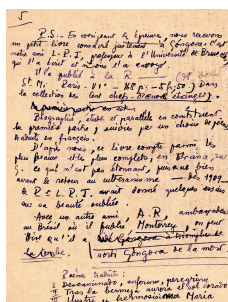 5
P.S.- En renvoyant les épreuves, nous recevons
un petit livre consacré justement à Góngora. C'est
notre ami L-P.T, professeur à l'Université de
qui l'a écrit et nous l'a envoyé
Il l'a publié à la R
St. M, Paris - VIe - 168 p - 5 f,50) Dans
la collection les cent chefs-d'œuvre étrangers.
Biographie, étude et parallèle en constituent
la première partie, suivies par un choix de
traduits en français.
D'après nous, ce livre compte parmi les
plus beaux et les plus complets, en
ce qui n'est pas étonnant, puisque bien
avant le retour au 1909
le P. L.P.T. avait donné quelques
sur sa beauté oubliée
Avec un autre ami, A.R, ambassadeur
au Brésil où il publie Monterrey, on peut
dire qu'il a
sorti Góngora de la mort
Poèmes traduits:
I Descaminado, enfermo, peregrino
II Tras la bermeja aurora el sol dorado
III Ilustre y hermosísima María